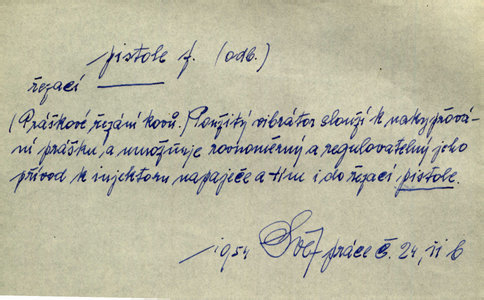 pistole f. (odb.)
řezací
(Práškové řezání kovů.) Použitý vibrátor slouží k nakypřová-
ní prášku, a umožňuje rovnoměrný a regulovatelný jeho
přívod k injektoru napaječe a tím i do řezací pistole.
1954 Svář práce č. 24, II b